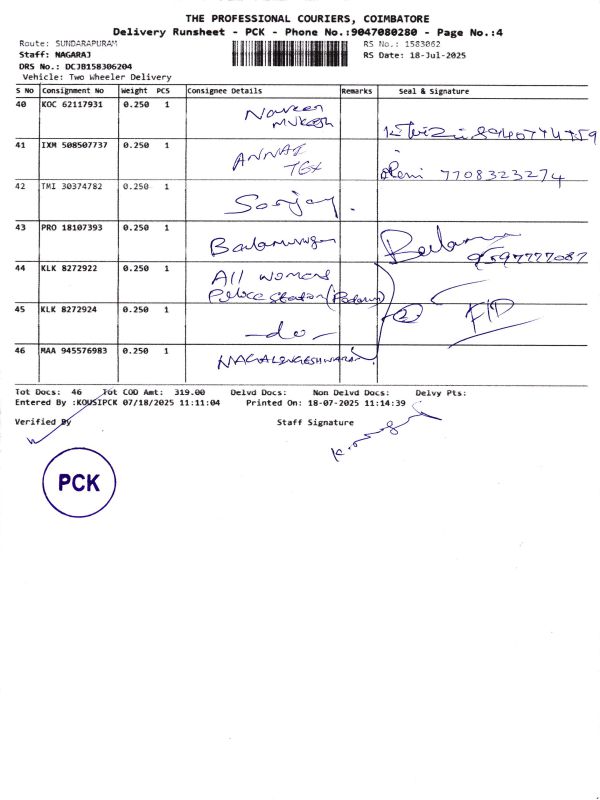 THE PROFESSIONAL COURIERS, COIMBATORE
Delivery Runsheet - PCK - Phone No.:9047080280 - Page No.:4
Route: SUNDARAPURAM RS No.: 1583062
Staff: NAGARAJ RS Date: 18-Jul-2025
DRS No.: DCJB158306204
Vehicle: Two Wheeler Delivery
S No Consignment No Weight PCS Consignee Details Remarks Seal & Signature
40 KOC 62117931 0.250 1 Naveen
Mukesh
41 IXM 508507737 0.250 1 ANNAI
TEX 7708323274
42 TMI 30374782 0.250 1 Sanjay.
43 PRO 18107393 0.250 1 Balamurugan
9597777087
44 KLK 8272922 0.250 1 All womens
Police Station
45 KLK 8272924 0.250 1 -do- 2 F/D
46 MAA 945576983 0.250 1 NAGALINGESHWARAN
Tot Docs: 46 Tot COD Amt: 319.00 Delvd Docs: Non Delvd Docs: Delvy Pts:
Entered By :KOUSIPCK 07/18/2025 11:11:04 Printed On: 18-07-2025 11:14:39
Verified By Staff Signature
PCK